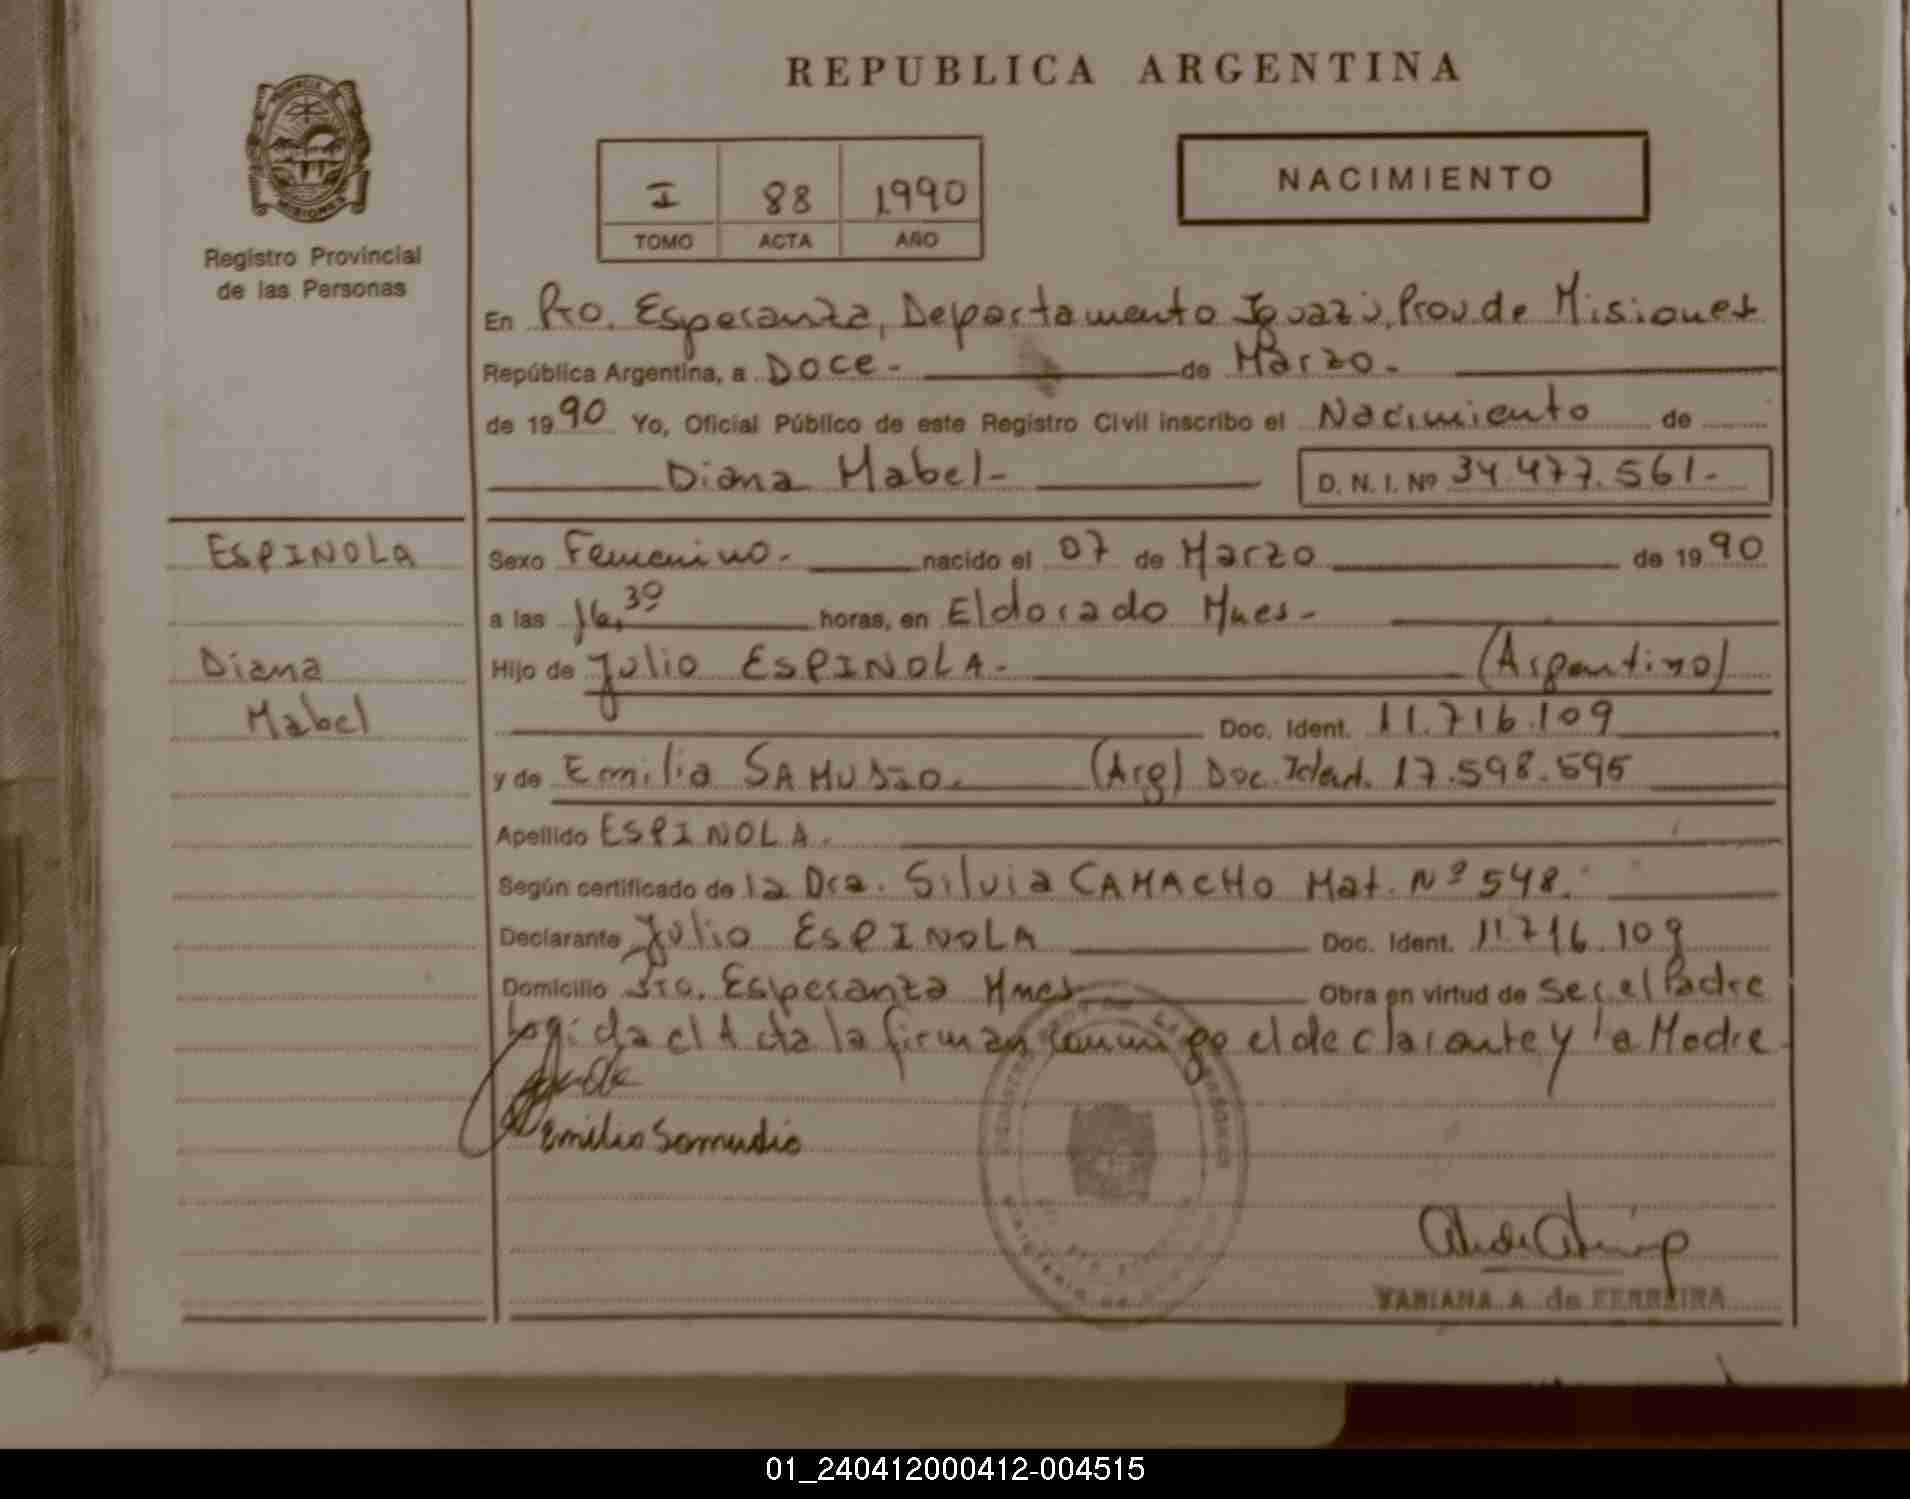 REPUBLICA ARGENTINA
PROVINCIA DE
MISIONES
Registro Provincial
de las Personas
I 88 1990
TOMO ACTA AÑO
NACIMIENTO
En Pto. Esperanza, Departamento Iguazú, Prov de Misiones
República Argentina, a Doce - de Marzo -
de 1990 Yo, Oficial Público de este Registro Civil inscribo el Nacimiento de
Diana Mabel - D. N. I. Nº 34.477.561 -
ESPINOLA
Diana
Mabel
Sexo Femenino - nacido el 07 de Marzo de 1990
a las 16,30 horas, en Eldorado Mnes -
Hijo de Julio ESPINOLA - (Argentino)
Doc. Ident. 11.716.109
y de Emilia SAMUDIO - (Arg) Doc. Ident. 17.598.595
Apellido ESPINOLA -
Según certificado de la Dra. Silvia CAMACHO Mat. Nº 548.
Declarante Julio ESPINOLA Doc. Ident. 11.716.109
Domicilio Pto. Esperanza Mnes Obra en virtud de ser el Padre
Leida el Acta la firman conmigo el declarante y la Madre
Emilia Samudio
A. de FERREIRA
01_240412000412-004515